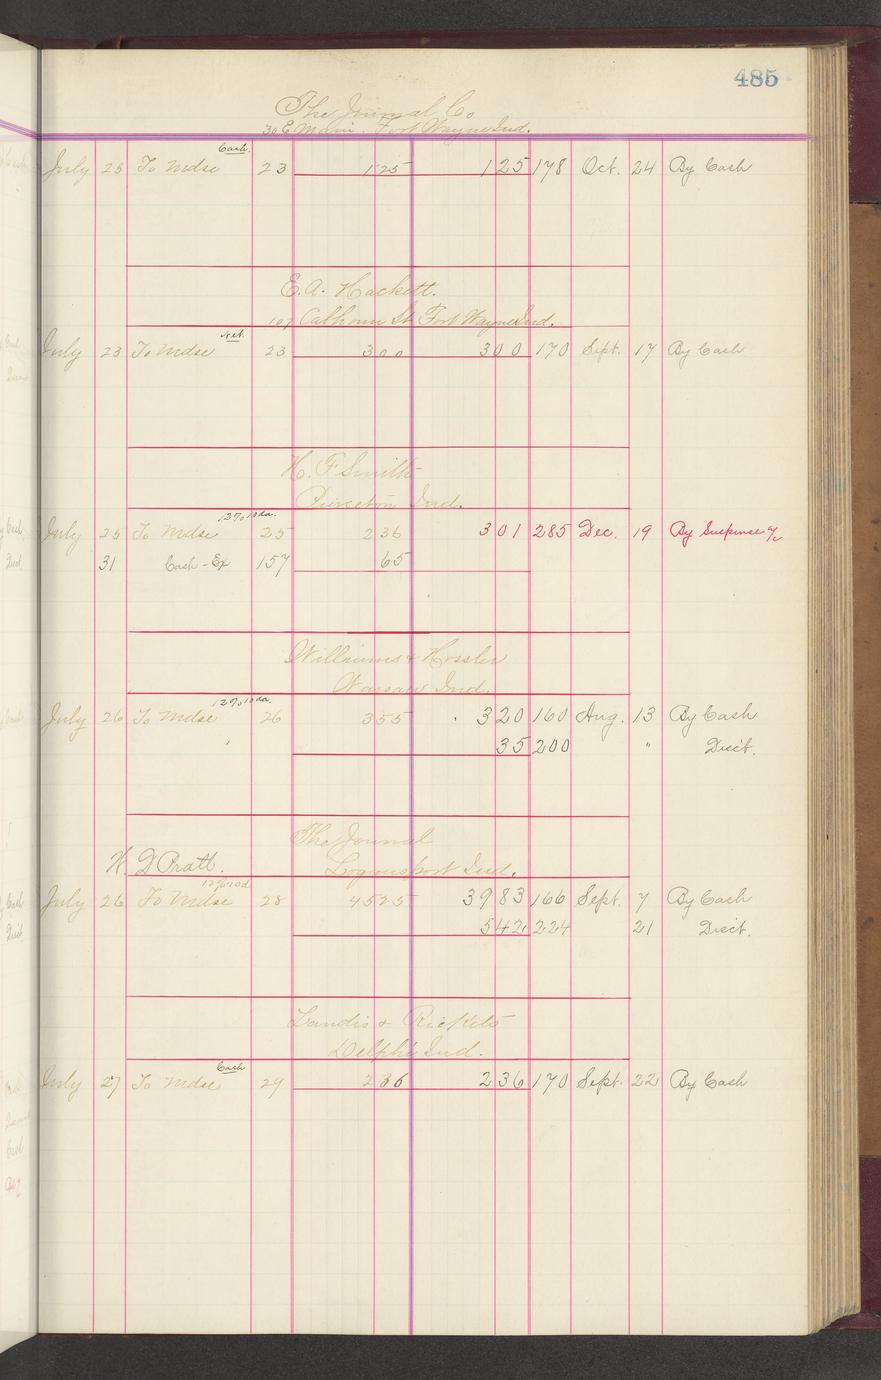 485
The Journal Co
30 E Main. Fort Wayne Ind.
Cash
July 25 To Mdse 23 1 25 1 25 178 Oct. 24 By Cash
E. A. Hackett.
107 Calhoun St Fort Wayne Ind.
Net
July 23 To Mdse 23 3 00 3 00 170 Sept. 17 By Cash
H. F Smith
Pierceton Ind.
12% 10 da.
July 25 To Mdse 25 2 36 3 01 285 Dec. 19 By Suspense a/c
31 Cash - Ex 157 65
Williams & Hossler
Warsaw Ind.
12% 10 da.
July 26 To Mdse 26 3 55 3 20 160 Aug. 13 By Cash
35 200 " Disct.
The Journal
H. D Pratt. Logansport Ind.
12% 10 d
July 26 To Mdse 28 45 25 39 83 166 Sept. 7 By Cash
5 42 224 21 Disct.
Landis & Rickets
Delphi Ind.
Cash
July 27 To Mdse 29 2 36 2 36 170 Sept. 22 By Cash